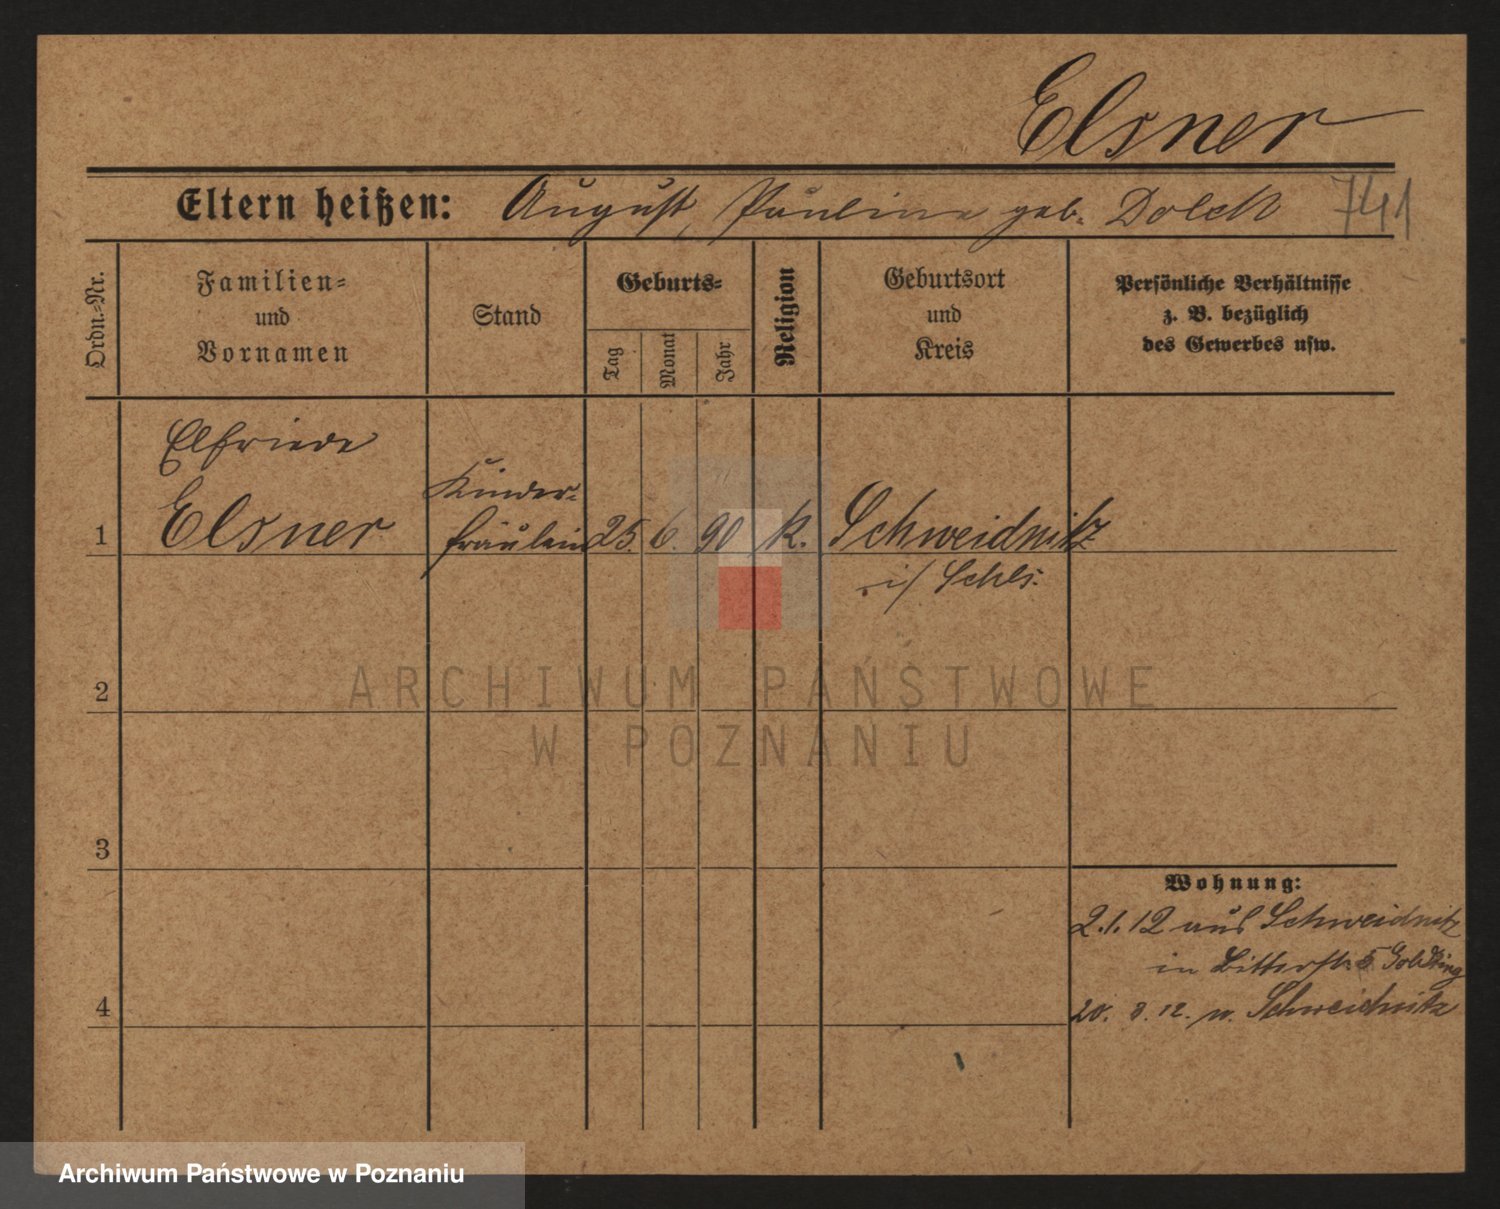 Elsner
Eltern heißen: August, Pauline geb. Dolch 741
Ordn.-Nr.
Familien-
und
Vornamen
Stand
Geburts-
Tag
Monat
Jahr
Religion
Geburtsort
und
Kreis
Persönliche Verhältnisse
z. B. bezüglich
des Gewerbes usw.
Elfriede
Kinder-
1 Elsner fräulein 25. 6. 90 k. Schweidnitz
i/ Schls.
ARCHIWUM PAŃSTWOWE
W POZNANIU
2
3
Wohnung:
2.1.12 aus Schweidnitz
in Bitterstr. 5
4 20. 3. 12. n. Schweidnitz
Archiwum Państwowe w Poznaniu